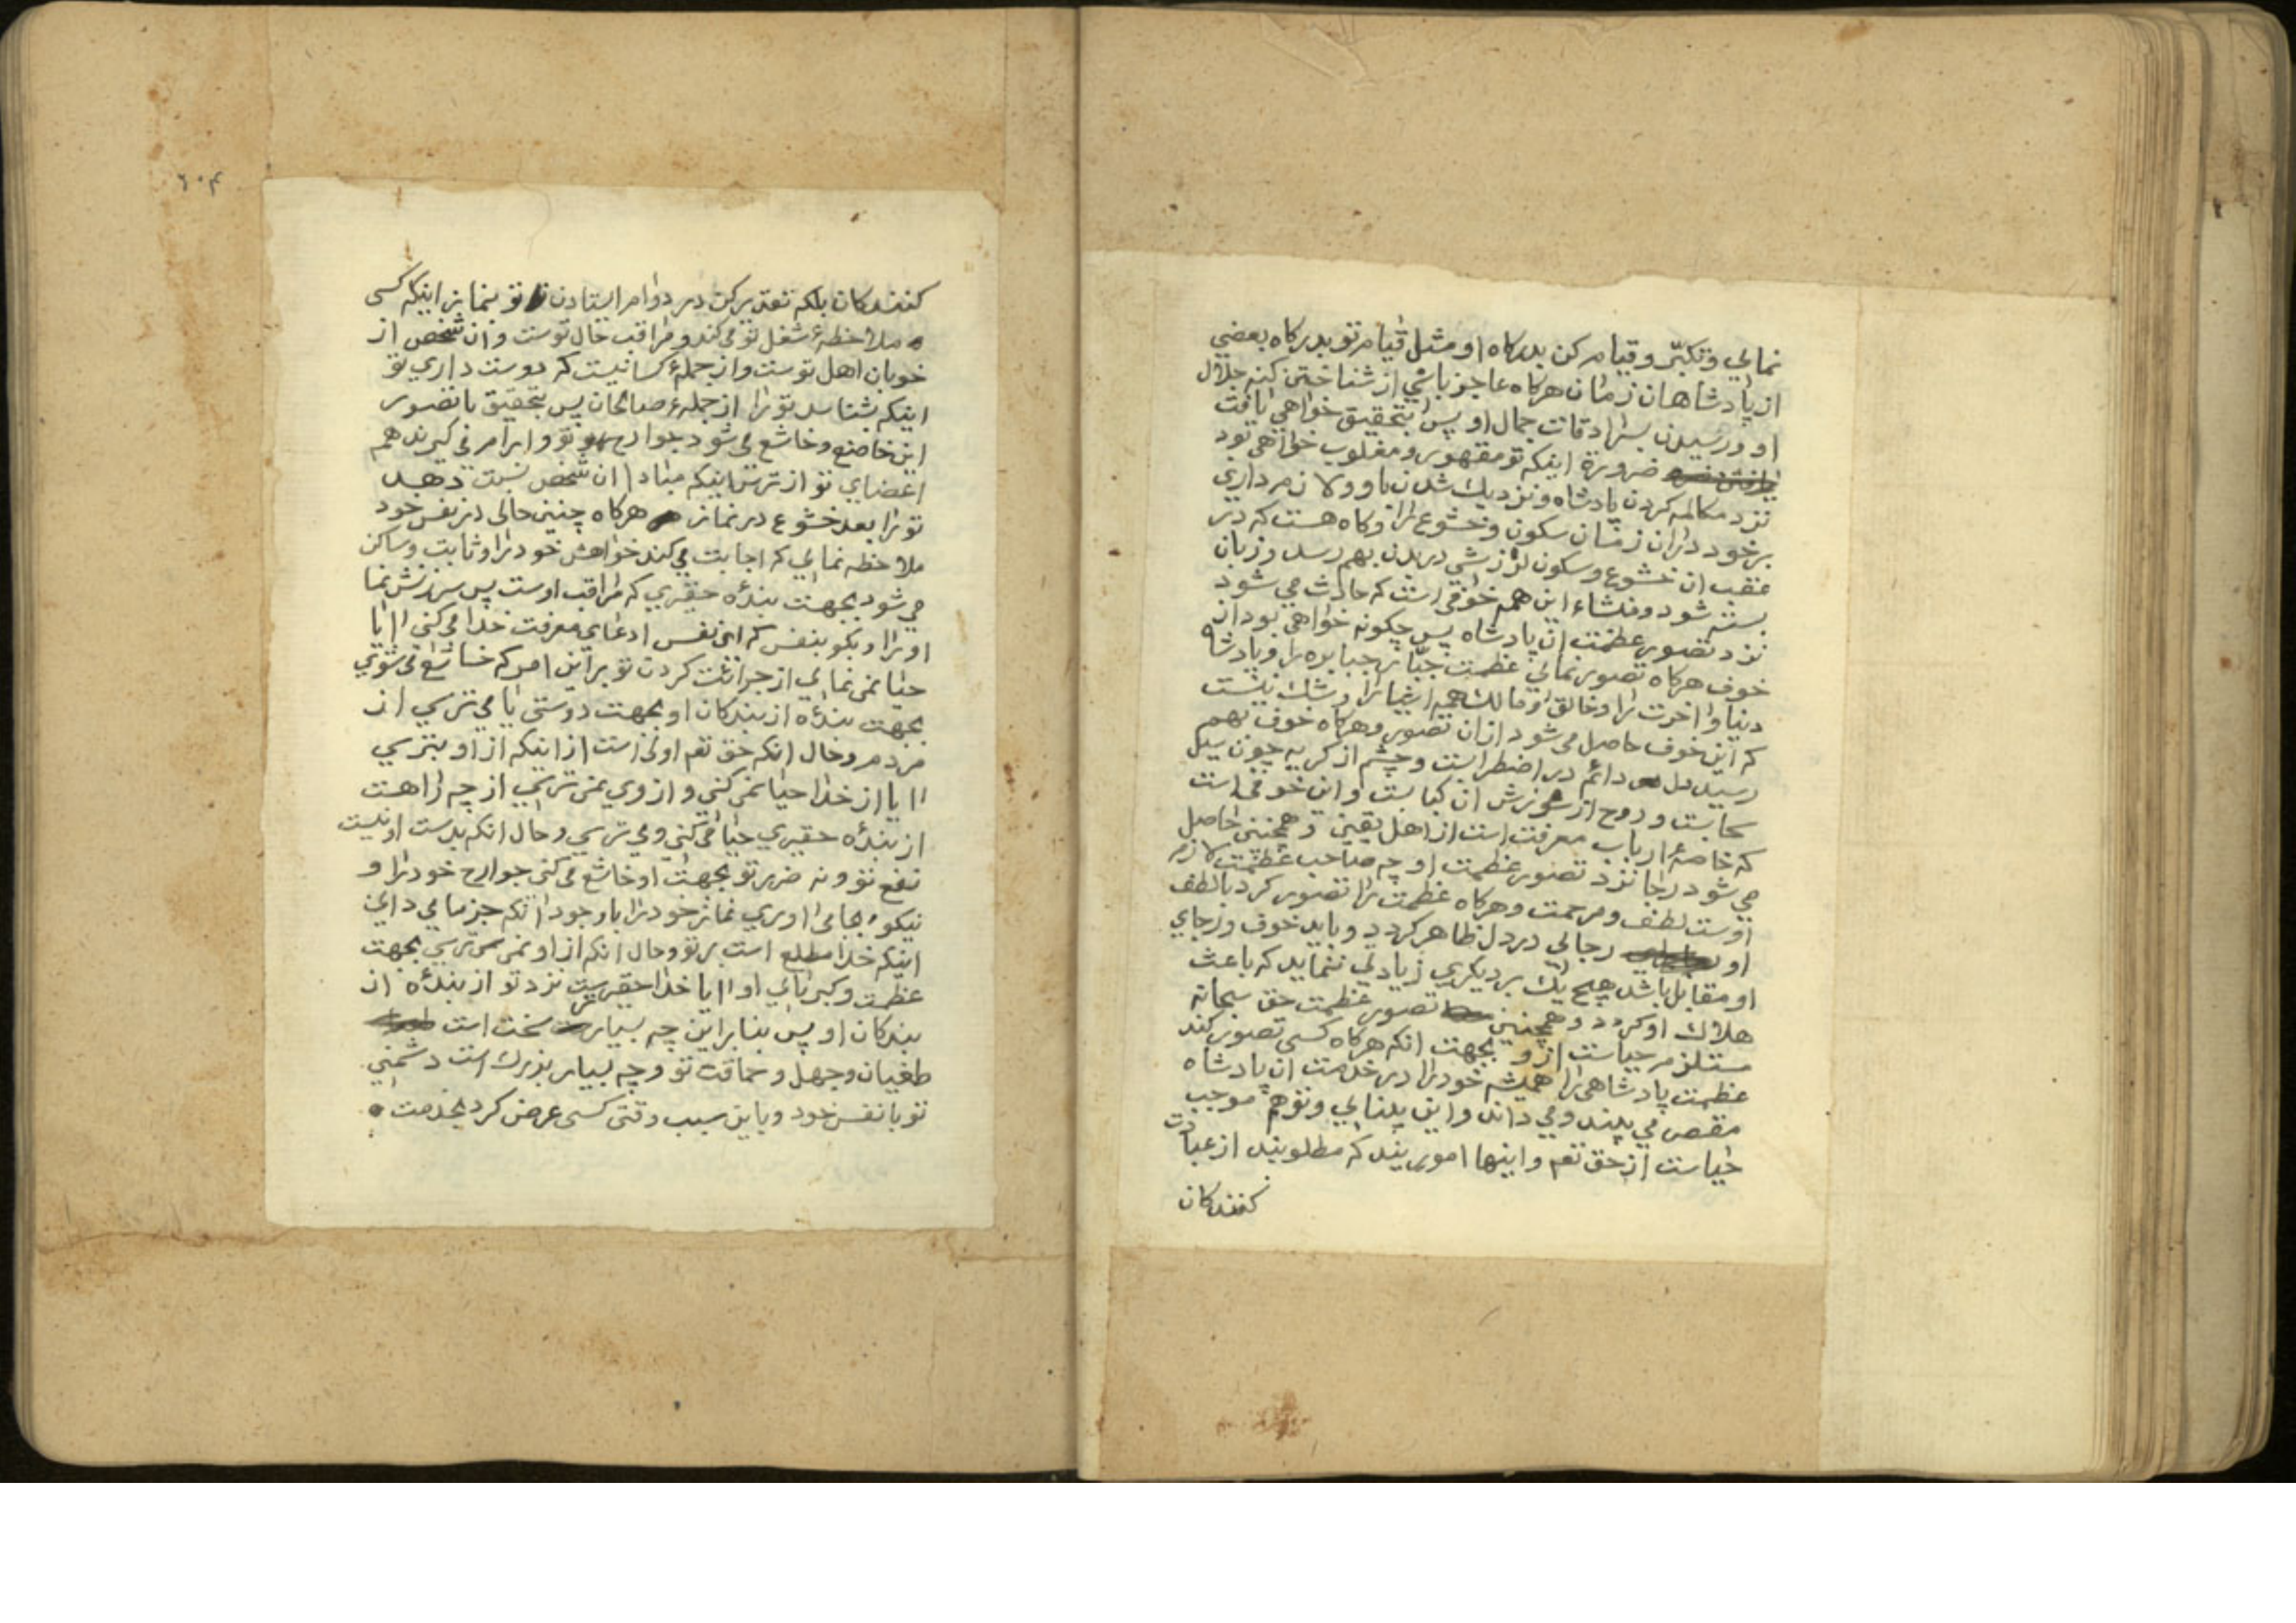 نمائي وتكبّر وقيام كن بدركاه او مثل قيام تو بدركاه بعضي
از پادشاهان زمان هركاه عاجز باشي از شناختن كنه جلال
او ورسيدن بسرادقات جمال او پس بتحقيق خواهي يافت
ضرورة اينكه تو مقهور ومغلوب خواهي بود
نزد مكالمه كردن پادشاه ونزديك شدن باو ولازم داري
برخود دران زمان سكون وخشوع را وكاه هست كه در
عقب ان خشوع وسكون لرزشي در بدن بهم رسد وزبان
بسته شود ومنشاء اين همه خوفي است كه حادث مي شود
نزد تصور عظمت ان پادشاه پس چكونه خواهي بود از
خوف هركاه تصور نمائي عظمت جبّار جبابره را وپادشاه
دنيا واخرت را وخالق ومالك همه اشيا را وشك نيست
كه اين خوف حاصل مي شود از ان تصور وهركاه خوف بهم
رسيد دل دائم در اضطرابست وچشم از كريه چون سيل
سحابست وروح از سوزش ان كبابست واين خوفي است
كه خاصهٔ ارباب معرفت است از اهل يقين وهمچنين حاصل
مي شود رجا نزد تصور عظمت او چه صاحب عظمت لازم
اوست لطف ومرحمت وهركاه عظمت را تصور كرد بالطف
او رجائي در دل ظاهر كردد وبايد خوف ورجاي
او مقابل باشد هيچ يك بر ديكري زيادتي ننمايد كه باعث
هلاك او كردد وهمچنين تصور عظمت حق سبحانه
مستلزم حياست از و بجهت انكه هركاه كسي تصور كند
عظمت پادشاهي را هميشه خود را در خدمت ان پادشاه
مقصر مي بيند ومي داند واين بينائي وتوهم موجب
حياست از حق تعم واينها اموريند كه مطلوبند از عبادت
كنندكان
٦٠٤
كنندكان بلكه تقدير كن در دوام ايستادن تو بنماز اينكه كسي
ملاحظهٔ شغل تو مي كند ومراقب حال توست وان شخص از
خوبان اهل توست واز جملهٔ كسانيست كه دوست داري تو
اينكه بشناسد تو را از جملهٔ صالحان پس بتحقيق باتصور
اين خاضع وخاشع مي شود جوارح تو وارام مي كيرند همه
اعضاي تو از ترس اينكه مبادا ان شخص نسبت دهد
تو را بعدم خشوع در نماز هركاه چنين حالي در نفس خود
ملاحظه نمائي كه اجابت مي كند خواهش خود را وثابت وساكن
مي شود بجهت بندهٔ حقيري كه مراقب اوست پس سرزنش نما
او را وبكو بنفس كه اي نفس ادعاي معرفت خدا مي كني اايا
حيا نمي نمائي از جرائت كردن تو براين امر كه خاشع مي شوي
بجهت بندهٔ از بندكان او بجهت دوستي يا مي ترسي از
مردم وحال انكه حق تعم اولي است از اينكه از او بترسي
اايا از خدا حيا نمي كني واز وي نمي ترسي از چه راهست
از بندهٔ حقيري حيا مي كني ومي ترسي وحال انكه بدست او نيست
نفع تو ونه ضرر تو بجهت او خاشع مي كني جوارح خود را و
نيكو بجا مي اوري نماز خود را باوجود انكه جزما مي داني
اينكه خدا مطلع است بر تو وحال انكه از او نمي ترسي بجهت
عظمت وكبريائي او اايا خدا حقيرترست نزد تو از بندهٔ از
بندكان او پس بنابراين چه بسيار سخت است
طغيان وجهل وحماقت تو وچه بسيار بزرك است دشمني
تو با نفس خود وباين سبب وقتي كسي عرض كرد بخدمت